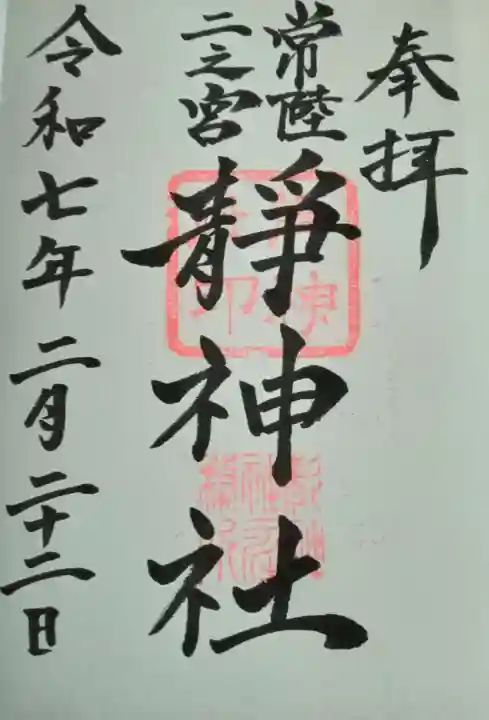 奉拝
常陸
二之宮
靜神社
令和七年二月二十二日